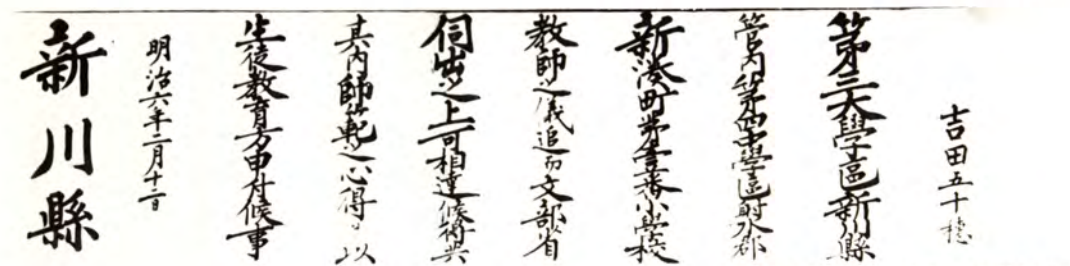 吉田五十穂
第三大學區新川縣
管内第四中學區射水郡
新湊町第壹番小學校
教師之儀追而文部省
伺出之上可相達候得共
其内師範之心得ヲ以
生徒教育方申付候事
明治六年二月十二日
新川縣